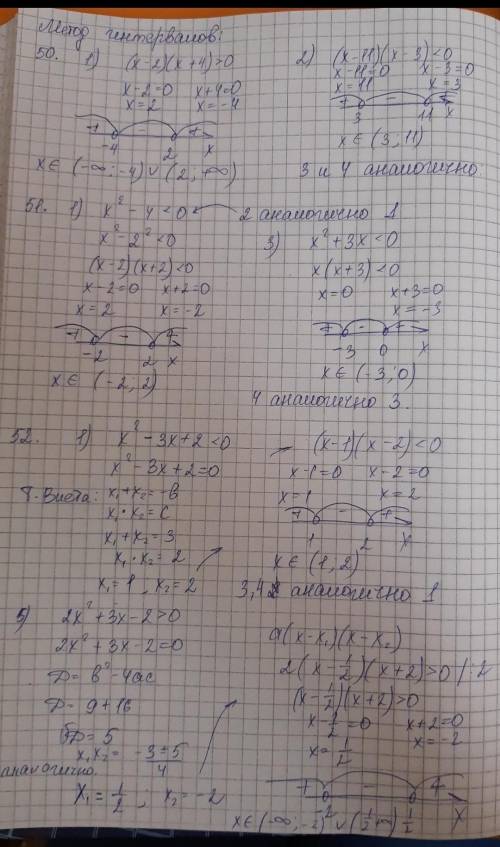 Метод интервалов:
50. 1) (x-2)(x+4)>0
x-2=0 x+4=0
x=2 x=-4
+ - +
-4 2 x
x∈ (-∞;-4)∪(2;+∞)
2) (x-11)(x-3)<0
x-11=0 x-3=0
x=11 x=3
+ - +
3 11 x
x∈ (3;11)
3 и 4 аналогично
51. 1) x²-4<0 2 аналогично 1
x²-2²<0
(x-2)(x+2)<0
x-2=0 x+2=0
x=2 x=-2
+ - +
-2 2 x
x∈ (-2;2)
3) x²+3x<0
x(x+3)<0
x=0 x+3=0
x=-3
+ - +
-3 0 x
x∈ (-3;0)
4 аналогично 3.
52. 1) x²-3x+2<0
x²-3x+2=0
Т. Виета: x₁+x₂=-в
x₁·x₂=c
x₁+x₂=3
x₁·x₂=2
x₁=1, x₂=2
(x-1)(x-2)<0
x-1=0 x-2=0
x=1 x=2
+ - +
1 2 x
x∈ (1,2)
3,4 аналогично 1
5) 2x²+3x-2>0
2x²+3x-2=0
D=в²-4ac
D=9+16
√D=5
x₁x₂= -3±5/4
аналогично.
x₁=1/2; x₂=-2
a(x-x₁)(x-x₂)
2(x-1/2)(x+2)>0 /:2
(x-1/2)(x+2)>0
x-1/2=0 x+2=0
x=1/2 x=-2
+ - +
-2 1/2 x
x∈ (-∞;-2)∪(1/2;+∞)